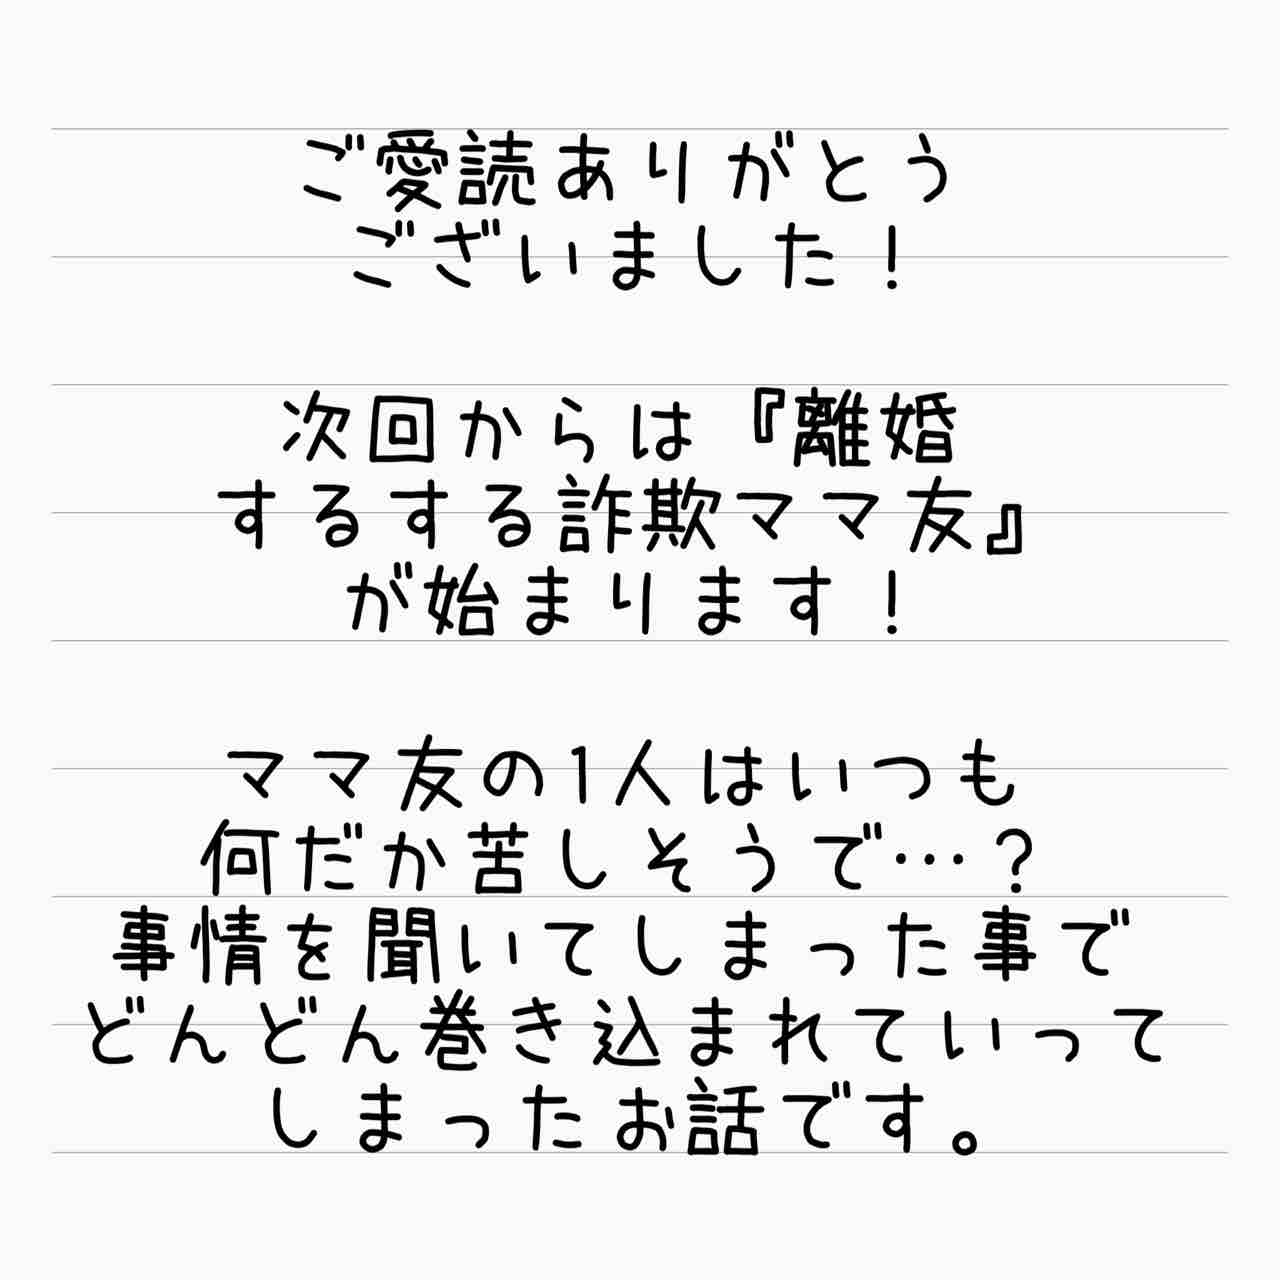 ご愛読ありがとう
ございました！
次回からは『離婚
するする詐欺ママ友』
が始まります！
ママ友の1人はいつも
何だか苦しそうで…？
事情を聞いてしまった事で
どんどん巻き込まれていって
しまったお話です。